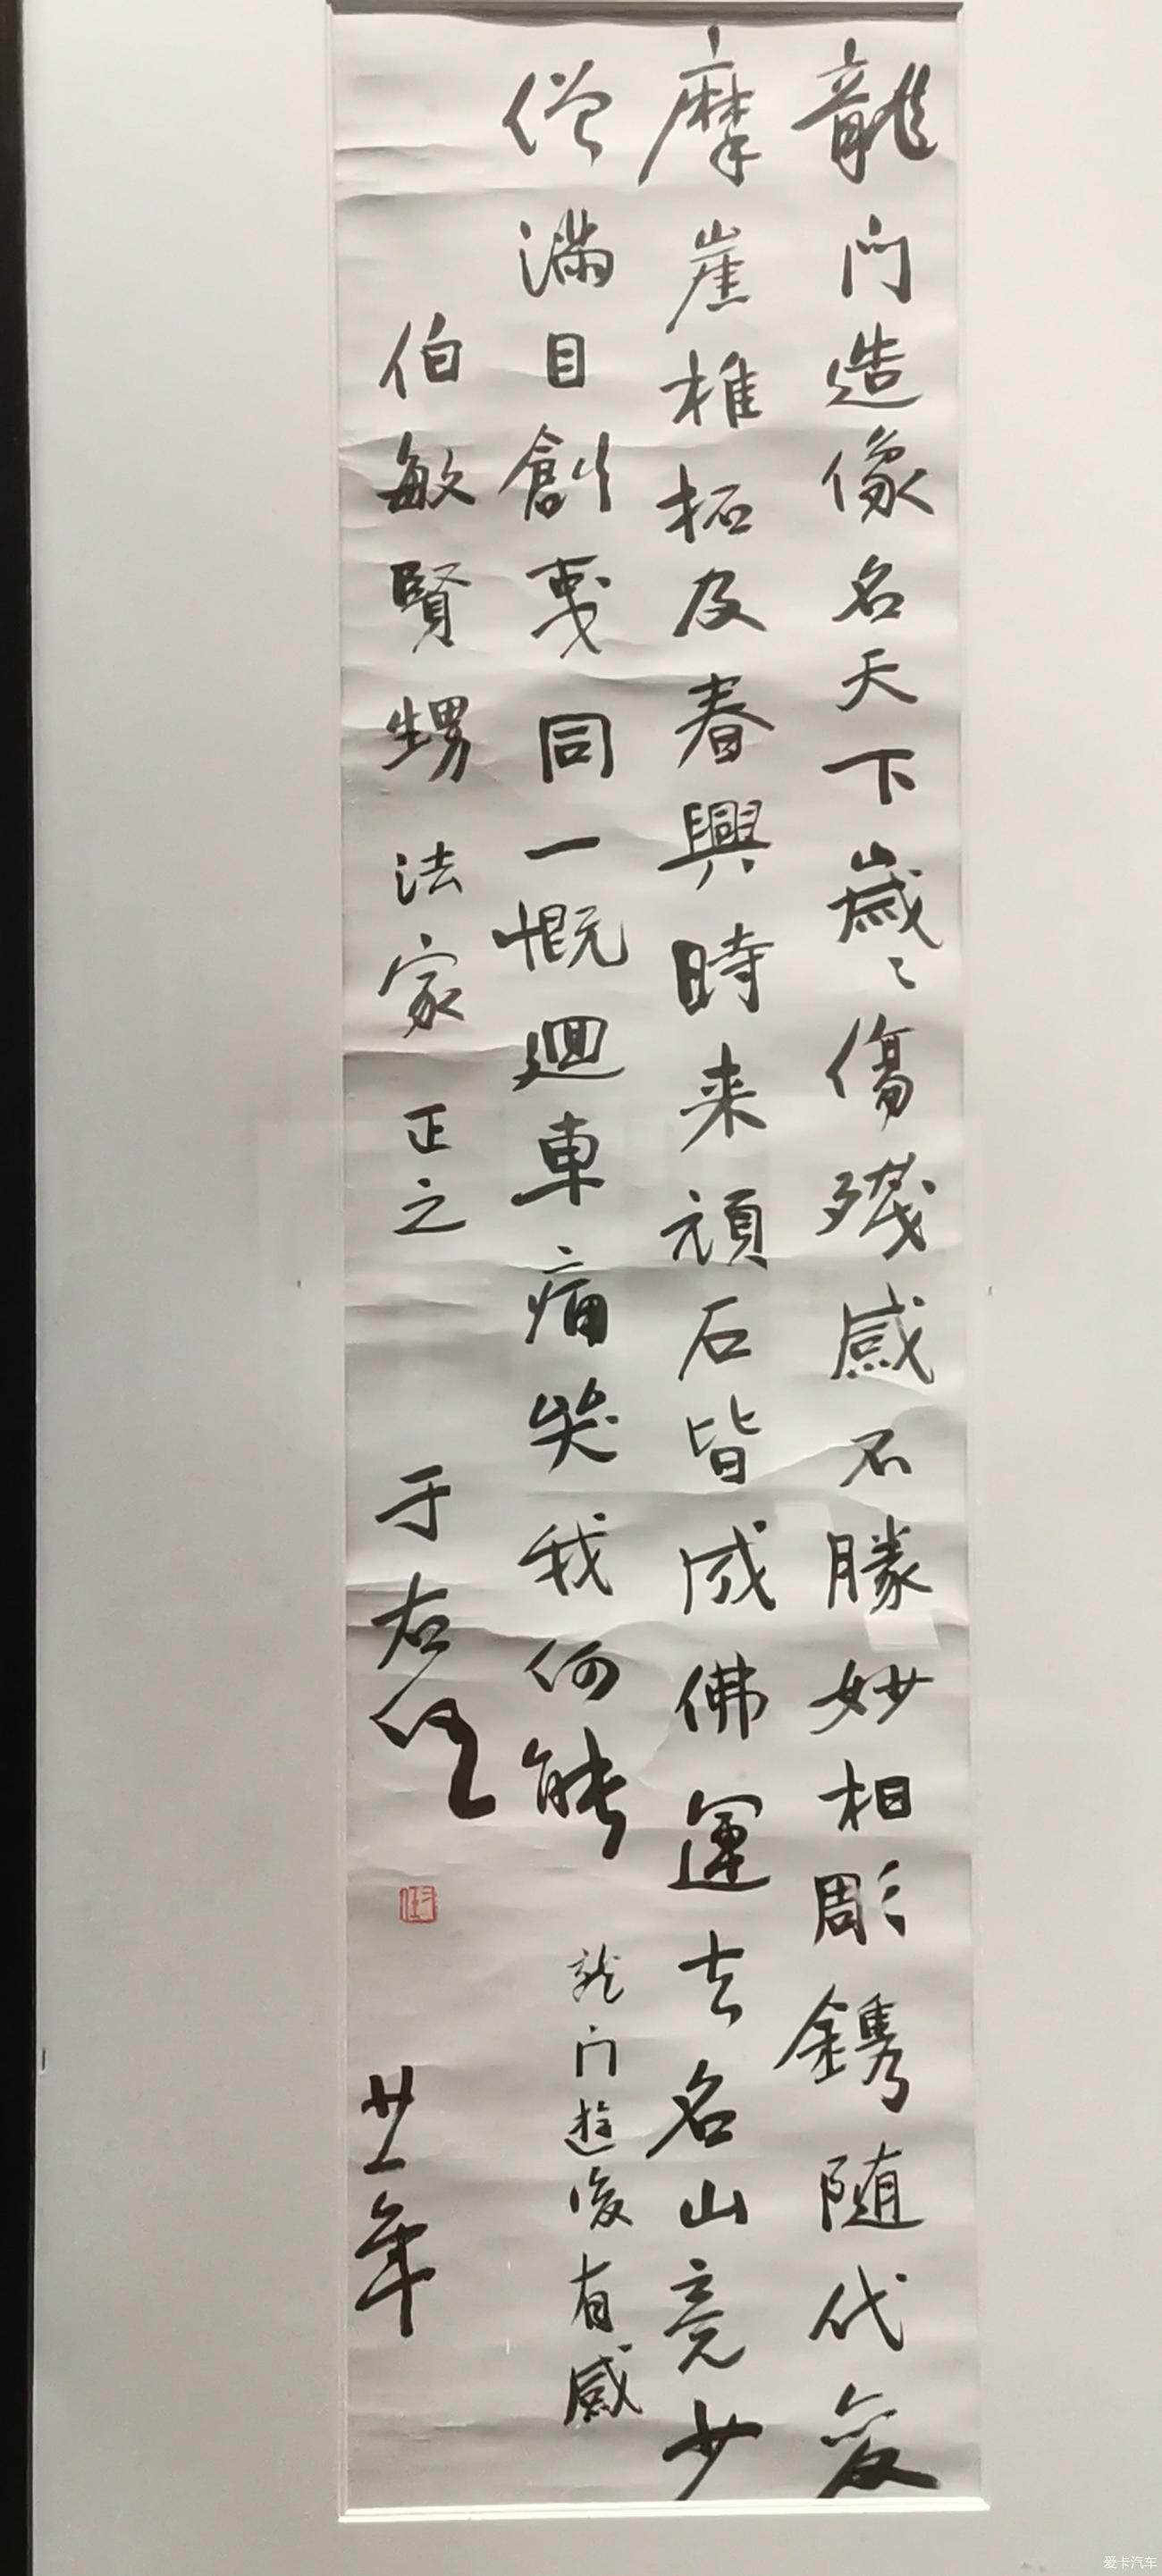 龍门造像名天下歲〻傷殘感不勝妙相彫鐫随代變
摩崖椎拓及春興時来頑石皆成佛運去名山竞少
僧满目創夷同一慨迴車痛哭我何能
龍门遊後有感
伯敏賢甥法家正之
于右任
廿一年
爱卡汽车